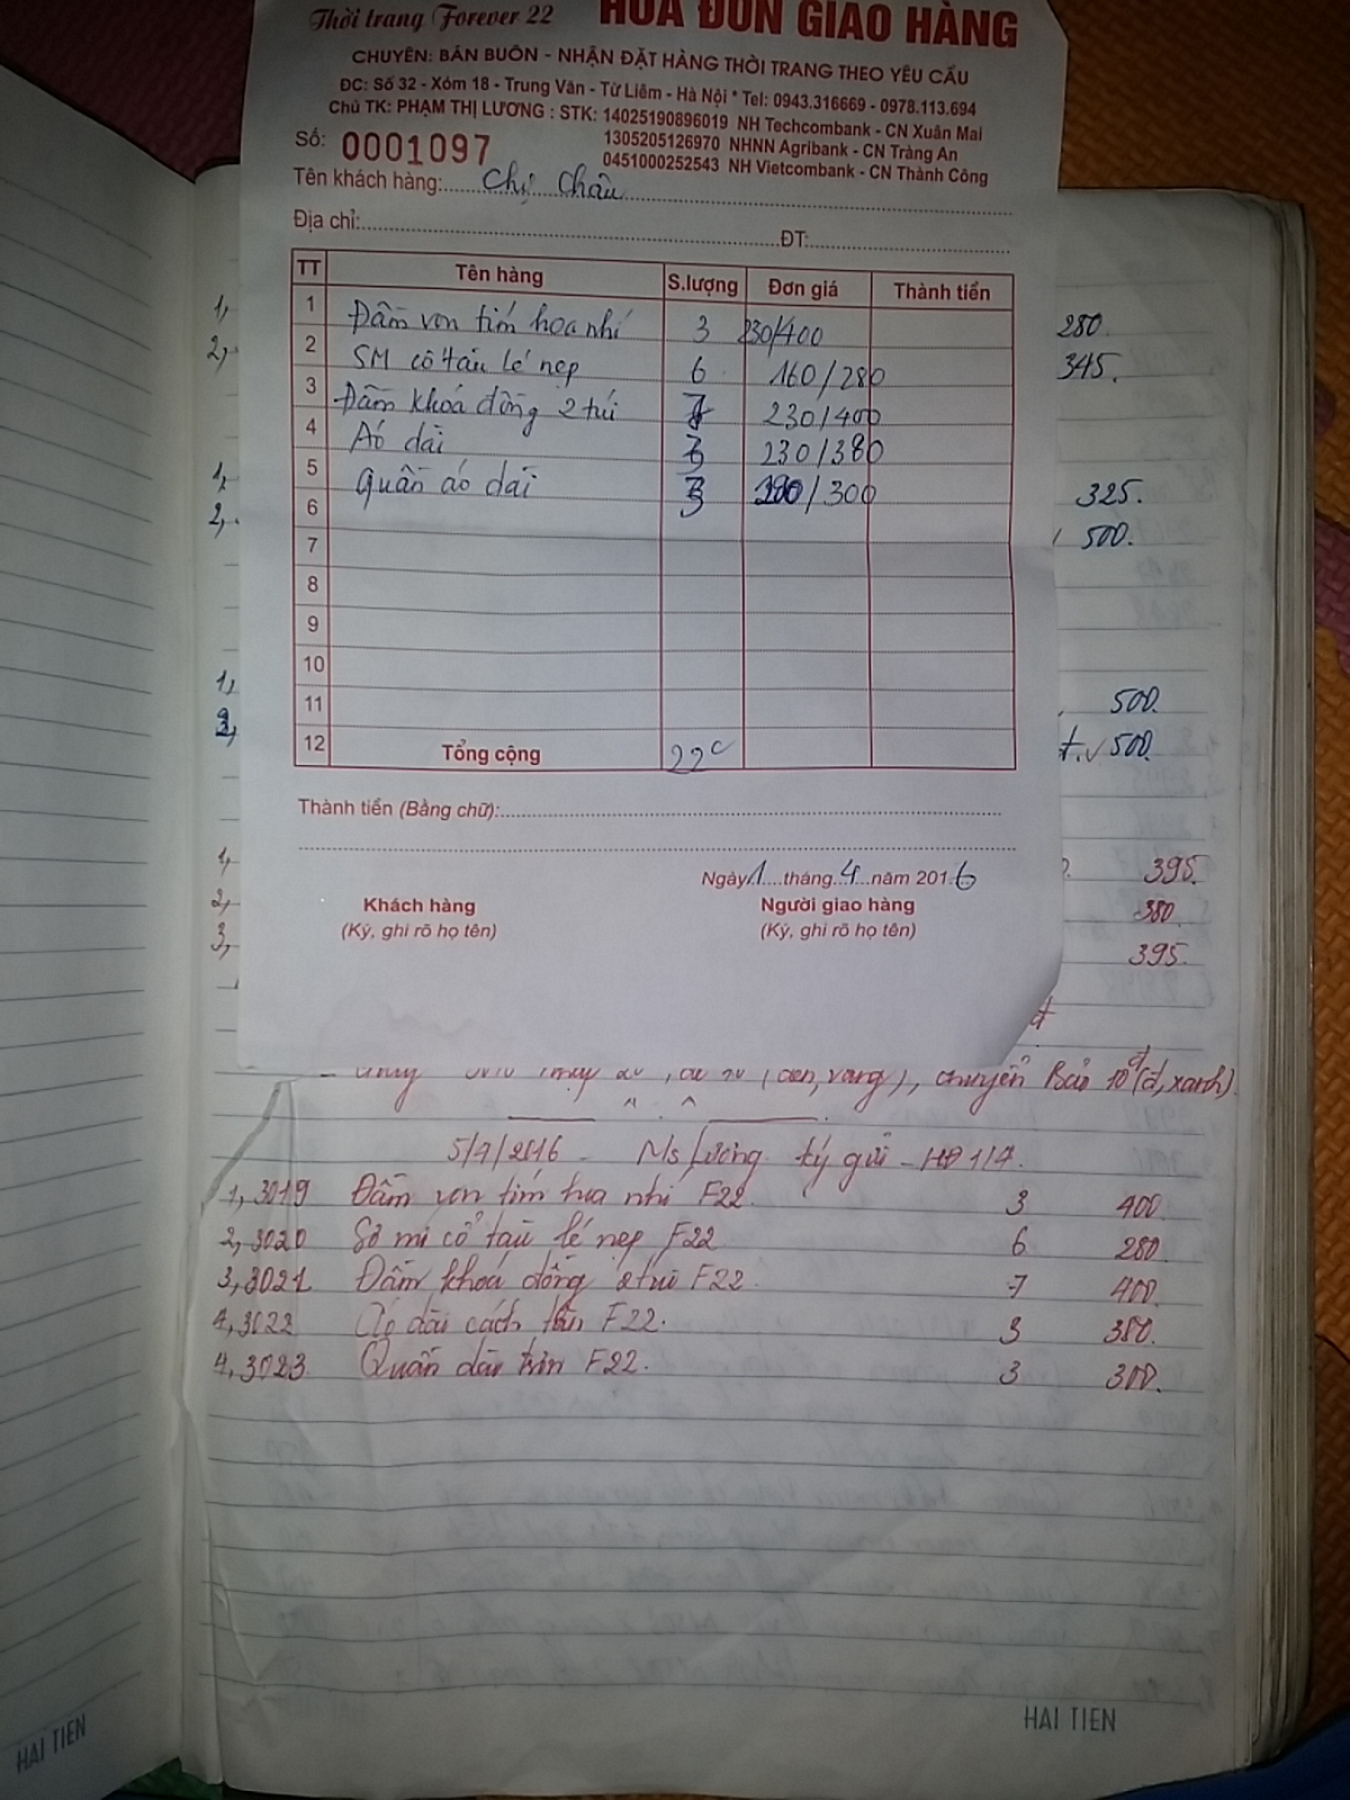 Thời trang Forever 22 HÓA ĐƠN GIAO HÀNG
CHUYÊN: BÁN BUÔN - NHẬN ĐẶT HÀNG THỜI TRANG THEO YÊU CẦU
ĐC: Số 32 - Xóm 18 - Trung Văn - Từ Liêm - Hà Nội * Tel: 0943.316669 - 0978.113.694
Chủ TK: PHẠM THỊ LƯƠNG : STK: 14025190896019 NH Techcombank - CN Xuân Mai
1305205126970 NHNN Agribank - CN Tràng An
0451000252543 NH Vietcombank - CN Thành Công
Số: 0001097
Tên khách hàng: Chị Châu
Địa chỉ: ĐT:
TT Tên hàng S.lượng Đơn giá Thành tiền
1 Đầm von tím hoa nhí 3 230/400
2 SM cổ tàu lé nẹp 6 160/280
3 Đầm khoá đồng 2 túi 7 230/400
4 Áo dài 3 230/380
5 Quần áo dài 3 /300
6
7
8
9
10
11
12 Tổng cộng 22c
Thành tiền (Bằng chữ):
Ngày 1 tháng 4 năm 2016
Khách hàng Người giao hàng
(Ký, ghi rõ họ tên) (Ký, ghi rõ họ tên)
1, 280.
2, 345.
1, 325.
2, 500.
1, 500.
2, 500.
1, 395.
2, 380
3, 395.
chuyển Bảo 10 (đ, xanh)
5/4/2016 - Ms Lương ký gửi - HĐ 1/4.
1, 3019 Đầm von tím hoa nhí F22 3 400.
2, 3020 Sơ mi cổ tàu lé nẹp F22 6 280
3, 3021 Đầm khoá đồng 2 túi F22. 7 400.
4, 3022 Áo dài cách tân F22. 3 380.
4, 3023. Quần dài trơn F22. 3 300.
HAI TIEN
HAI TIEN